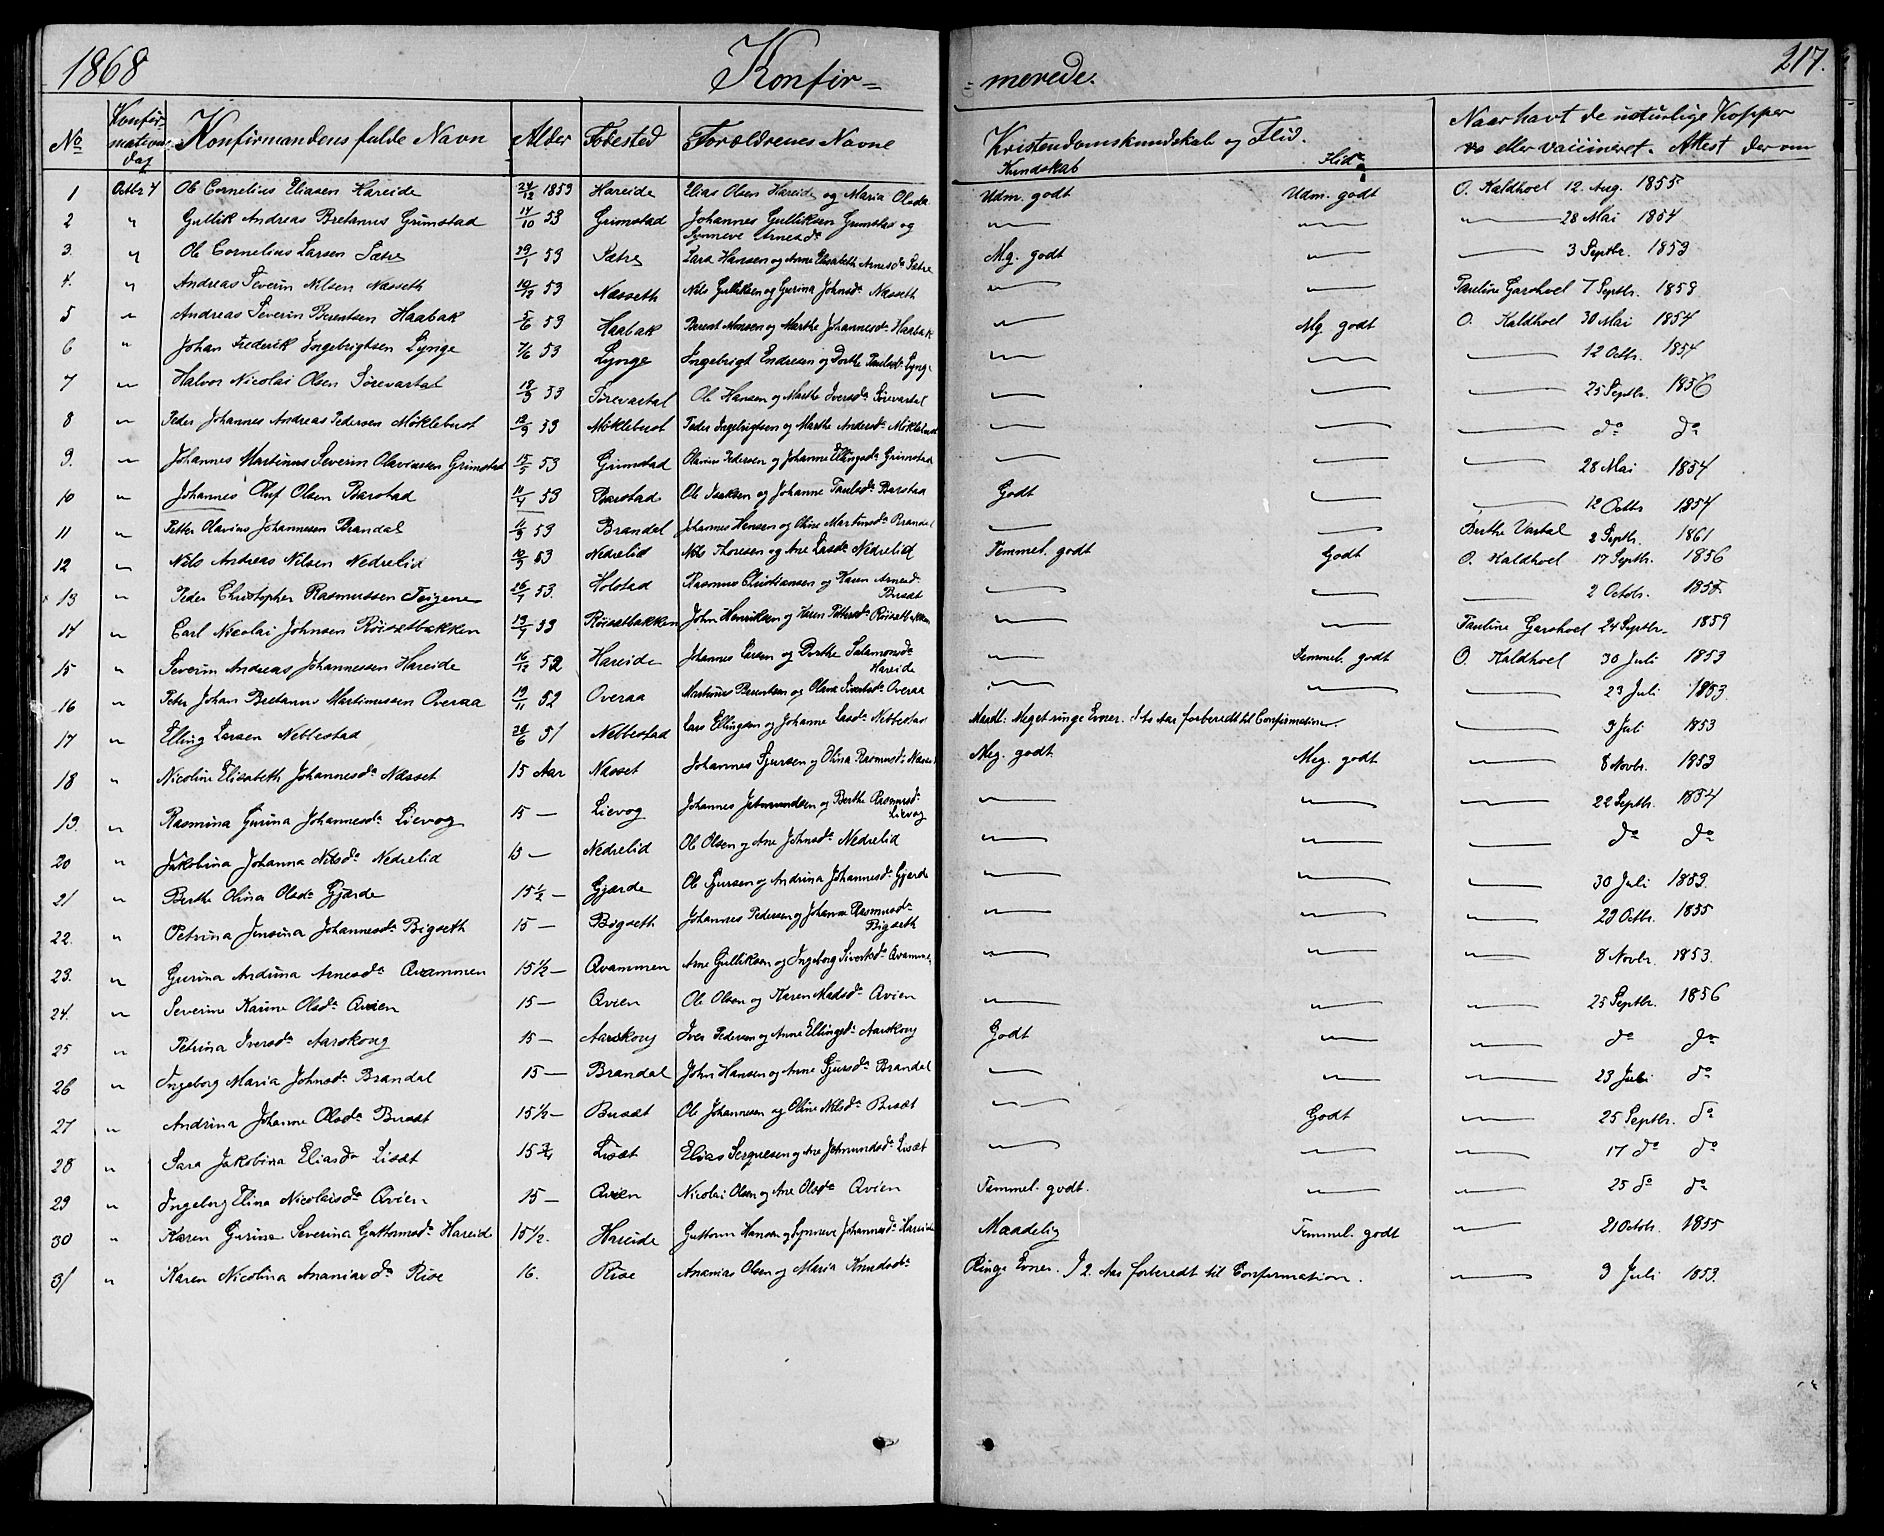 1868 Konfir= =merede. 217.
No Konfir- mations dag Konfirmandens fulde Navn Alder Fødested Forældrenes Navne Kristendomskundskab og Flid. Kundskab Flid Naar havt de naturlige Kopper
eller vaccineret. Attest derom
1 Octbr 4 Ole Cornelius Eliasen Hareide 24/12 1853 Hareide Elias Olsen Hareide og Maria Olsda Udm. godt Udm. godt O. Kaldhoel 12. Aug. 1855
2 " Gullik Andreas Bretannus Grimstad 14/10 53 Grimstad Johannes Gulliksen Grimstad og Synneve Arnesda " " " 28 Mai 1854
3. " Ole Cornelius Larsen Sætre 29/1 53 Sætre Lars Hansen og Anne Elisabeth Arnesda Sætre Mg. godt " " 3 Septbr. 1853
4. " Andreas Severin Nilsen Næsseth 19/12 53 Næsseth Nils Gulliksen og Gurina Johnsda Næsseth " " Pauline Garshoel 7 Septbr. 1858
5 " Andreas Severin Berentsen Haabak 5/6 53 Haabak Berent Monsen og Marthe Johannesda Haabak " Mg. godt O. Kaldhoel 30 Mai 1854
6 " Johan Frederik Ingebrigtsen Lynge 7/6 53 Lynge Ingebrigt Endresen og Dorthe Paulsda Lynge " " " 12 Octb. 1854
7 " Halvor Nicolai Olsen Sørevartal 18/3 53 Sørevartal Ole Hansen og Marthe Iversda Sørevartal " " " 25 Septbr. 1856
8 " Peder Johannes Andreas Pedersen Møklebust 12/9 53 Møklebust Peder Ingebrigtsen og Marthe Andersda Møklebust " " " do do
9. " Johannes Martinus Severin Olaviussen Grimstad 15/5 53 Grimstad Olavius Pedersen og Johanne Ellingsda Grimstad " " " 28 Mai 1854
10 " Johannes Oluf Olsen Barstad 11/4 53 Barstad Ole Isaksen og Johanne Paulsda Barstad Godt " " 12 Octb 1854
11 " Petter Olavius Johannesen Brandal 11/9 53 Brandal Johannes Hansen og Oline Martinsda Brandal " " Berthe Vartal 2 Septbr. 1861
12 " Nils Andreas Nilsen Nedrelid 10/9 53 Nedrelid Nils Thoresen og Ane Larsda Nedrelid Temmel. godt Godt O. Kaldhoel 17 Septbr. 1856
13 " Peder Christopher Rasmussen Teigene 26/1 53. Holstad Rasmus Christiansen og Karen Arnesda Busæt " " " 2 Octob. 1855
14 " Carl Nicolai Johnsen Røisætbakken 13/7 53 Røisætbakken John Henriksen og Karen Pettersda Røisætbakken " " Pauline Garshoel 24 Septbr. 1859
15 " Severin Andreas Johannessen Hareide 16/12 52 Hareide Johannes Larsen og Dorthe Salamonsda Hareide " Temmel. godt O. Kaldhoel 30 Juli 1853
16 " Peter Johan Bretanus Martinussen Overaa 19/11 52 Overaa Martinus Berentsen og Olava Sivertsda Overaa " " " 23 Juli 1853.
17 " Elling Larsen Nebbestad 26/6 51 Nebbestad Lars Ellingsen og Johanne Larsda Nebbestad Maadl: Meget ringe Evner. I to Aar forberedt til Confirmation " 9 Juli 1853
18 " Nicoline Elisabeth Johannesda Næsset 15 Aar Næsset Johannes Sjursen og Olina Rasmusda Næsset Meg. godt Meg. godt " 8 Novbr. 1853
19. " Rasmina Gurina Johannesda Lievog 15 — Lievog Johannes Jetmundsen og Berthe Rasmusda Lievog " " " 22 Septbr. 1854
20 " Jakobina Johanna Nilsda Nedrelid 15 — Nedrelid Ole Olsen og Ane Johnsda Nedrelid " " " do do
21 " Berthe Olina Olsda Gjærde 15 1/2 — Gjærde Ole Sjursen og Andrina Johannesda Gjærde " " " 30 Juli 1853.
22. " Petrina Jensina Johannesda Bigseth 15 — Bigseth Johannes Pedersen og Johanne Rasmusda Bigseth " " " 29 Octbr. 1855
23. " Gurina Andrina Arnesda Qvammen 15 1/2 — Qvammen Arne Gulliksen og Ingeborg Sivertsda Qvammen " " " 8 Novbr. 1853.
24. " Severine Karine Olsda Qvien 15 — Qvien Ole Olsen og Karen Madsda Qvien " " " 25 Septbr. 1856
25 " Petrina Iversda Aarskoug 15 — Aarskoug Iver Pedersen og Anne Ellingsda Aarskoug Godt " " do do
26 " Ingeborg Maria Johnsda Brandal 15 — Brandal John Hansen og Anne Sjursda Brandal " " " 23 Juli do
27 " Andrina Johanne Olsda Busæt 15 1/2 — Busæt Ole Johannesen og Oline Nilsda Busæt " Godt " 25 Septbr. do
28 " Sara Jakobina Eliasda Lisæt 15 3/4 Lisæt Elias Sergusen og Ane Jetmundsda Lisæt " " " 17 do do
29 " Ingeborg Elina Nicolaisda Qvien 15 — Qvien Nicolai Olsen og Ane Olsda Qvien Temmel. godt. " " 25 do do
30 " Karen Gurine Severina Guttormsda Hareide 15 1/2. Hareide Guttorm Hansen og Synneve Johannesda Hareide Maadelig Temmel. godt " 21 Octob. 1855
31 " Karen Nicolina Ananiasda Rise 16. Rise Ananias Olsen og Maria Knudsda Ringe Evner. I 2 Aar forberedt til Confirmation. " 9 Juli 1853.